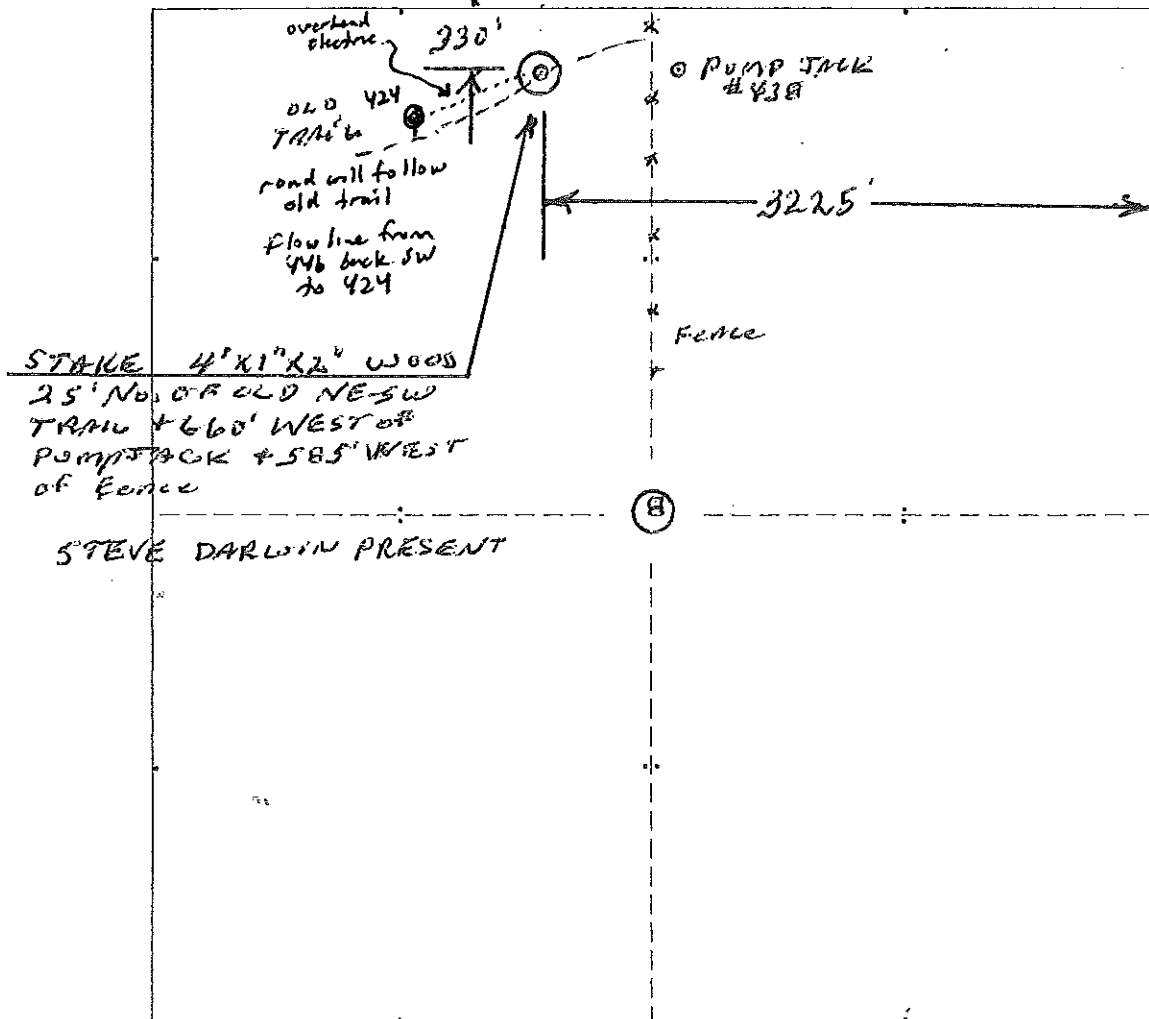 overhead
electric
330'
PUMP JACK
#438
OLD 424
TRAIL
road will follow
old trail
3225'
flow line from
446 back SW
to 424
Fence
STAKE 4'X1"X2" WOOD
25' No. OF OLD NE-SW
TRAIL + 660' WEST OF
PUMPJACK + 585' WEST
of Fence
8
STEVE DARWIN PRESENT